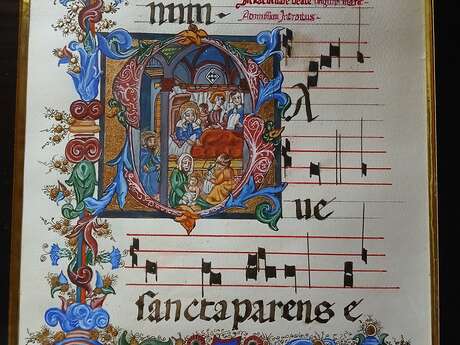 mini.
Beate Virginis Marie
Ad missam Introitus
A
ue
sancta parens e